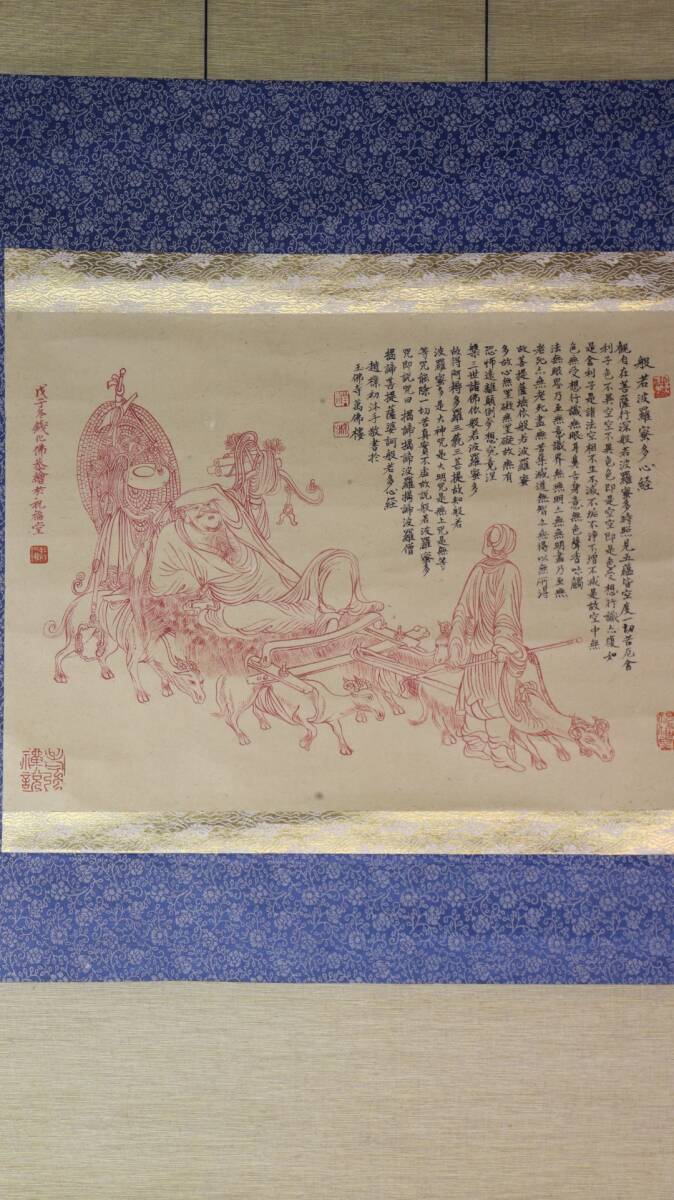 般若波羅蜜多心經
觀自在菩薩行深般若波羅蜜多時照見五蘊皆空度一切苦厄舍
利子色不異空空不異色色即是空空即是色受想行識亦復如
是舍利子是諸法空相不生不滅不垢不淨不增不減是故空中無
色無受想行識無眼耳鼻舌身意無色聲香味觸
法無眼界乃至無意識界無無明亦無無明盡乃至無
老死亦無老死盡無苦集滅道無智亦無得以無所得
故菩提薩埵依般若波羅蜜
多故心無罣礙無罣礙故無有
恐怖遠離顛倒夢想究竟涅
槃三世諸佛依般若波羅蜜多
故得阿耨多羅三藐三菩提故知般若
波羅蜜多是大神咒是大明咒是無上咒是無等
等咒能除一切苦真實不虛故說般若波羅蜜多
咒即說咒曰揭諦揭諦波羅揭諦波羅僧
揭諦菩提薩婆訶般若多心經
趙樸初沐手敬書於
玉佛寺萬佛樓
戊子年錢化佛恭繪於祝福堂